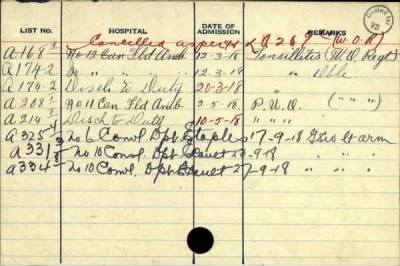 LIST NO. HOSPITAL DATE OF ADMISSION REMARKS
Cancelled as per H.Q. 26 (W.O.R)
A168 No 12 Can Fld Amb 12-3-18 Tonsillitis (W.O. Regt)
A174-2 " " " 12-3-18 " Ditto
A174-2 Disch to Duty 20-3-18 "
A208 No 11 Can Fld Amb 2-5-18 P.U.O. (" " ")
A214 Disch to Duty 10-5-18 " " "
A325 No 6 Conv. Dpt Etaples 17-9-18 arm
A331 No 10 Conv. Dpt 23-9-18 " "
A334 No 10 Conv. Dpt 27-9-18 " "